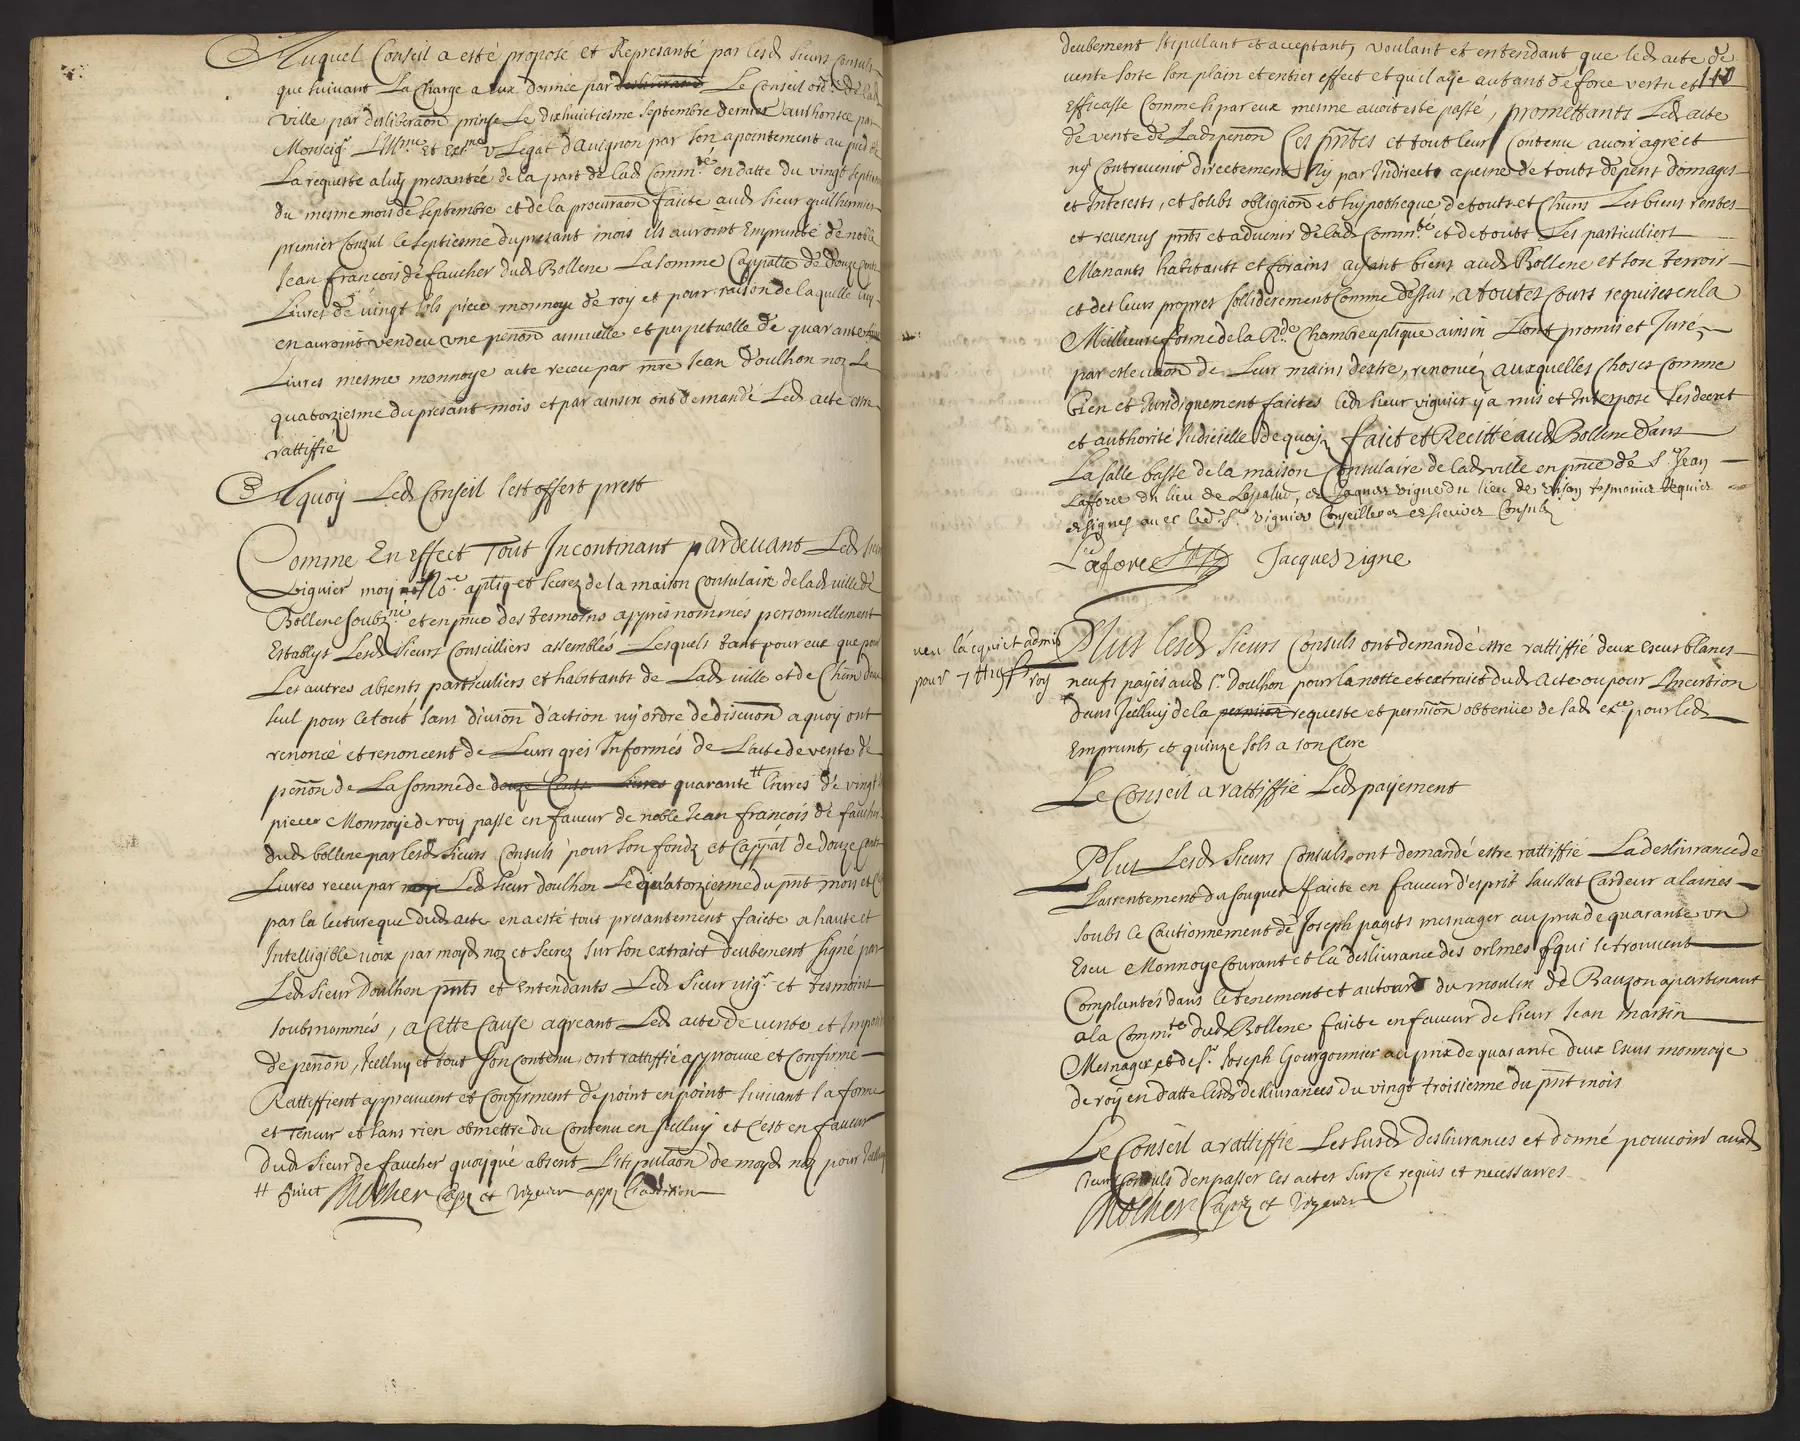 Auquel Conseil a esté proposé et Represanté par lesd sieurs Consuls
que suivant La Charge a eux donnée par desliberaon Le Conseil ord.re de lad
ville par desliberaon prinse Le dixhuitiesme septembre dernier authorisée par
Monseig.r Ill.me et Ex.me v Legat d'avignon par son apointement au pied de
La requeste a luy presantée de la part de lad Comm.té en datte du vingt septiesme
du mesme mois de septembre et de la procuraon faicte aud sieur guilhermier
premier Consul le septiesme du presant mois ils auroint Emprunté de noble
Jean francois de faucher dud Bollene La somme Cappalle de douze cents
Livres de vingt sols piece monnoye de roy et pour raison de laquelle luy
en auroint vendeu une penon annuelle et perpetuelle de quarante
Livres mesme monnoye acte receu par mre Jean d'oulhon nore Le
quatorziesme du presant mois et par ainsin ont demandé Led acte estre
rattiffié
A quoy Led Conseil s'est offert prest
Comme En effect Tout Incontinant pardevant Led sieur
viguier moy No.re aplíq et secre de la maison Consulaire de lad ville de
Bollene soubz.né et en pnce des tesmoins appres nommés personnellement
Establys Lesd sieurs Conseilliers assemblés Lesquels tant pour eux que pour
Les autres absents particuliers et habitants de Lad ville et de Chun deux
seul pour le tout sans divion d'action ny ordre de discuon a quoy ont
renoncé et renoncent de Leurs grés Informés de L'acte de vente de
penon de La somme de douze Cents Livres quarante # livres de vingt
pieces Monnoye de roy passé en faveur de noble Jean francois de faucher
dud bollene par lesd sieurs Consuls pour son fondz et Cappal de douze Cents
Livres receu par moy Led sieur doulhon Le quatorziesme du pnt mois et
par la lecture que dud acte en a esté tout presantement faicte a haute et
Intelligible voix par moyd nore et secre sur son extraict deubement signé par
Led sieur doulhon pnts et Entendants Led sieur vig.r et tesmoins
soubsnommés, a Cette Cause agreant Led acte de vente et Imposi
de penon, Icelluy et tout son Contenu, ont rattiffié approuvé et Confirmé
Rattiffient appreuvent et Confirment de point en point suivant sa forme
et Teneur et sans rien obmettre du Contenu en Icelluy et C'est en faveur
dud sieur de faucher quoyque absent L'stipulaon de moyd nore pour
# Huict Molher Capp et viguier app L'addition
110
deubement stipulant et acceptant, voulant et entendant que led acte de
vente sorte son plain et entier effect et qu'il aye autant de force vertu et
Efficasse Comme si par eux mesme avoit esté passé, promettants Led acte
de vente de Lad penon Ces pntes et tout leur Contenu avoir agré et
ny Contrevenir directement Ny par Indirect a peine de touts despens domages
et Interests, et soubs obligaon et hypotheque de touts et Chuns Les biens rentes
et revenus pnts et advenir de lad Comm.té et de touts Les particuliers
Manants habitants et forains ayant biens aud Bollene et son terroir
et des leurs propres solliderement Comme dessus, a toutes Cours requises en la
Meilleure forme de la R.de Chambre aplique ainsin L'ont promis et Juré
par eslevaon de Leur mains dextre, renoncé, auxquelles choses Comme
bien et Juridiquement faictes led sieur viguier y a mis et Interposé ses decret
et authorité Judicielle de quoy, faict et Recitté aud Bollene dans
La salle basse de la maison Consulaire de lad ville en pnce de s.r Jean
Lafforee du lieu de Lapalud, et Jaques vigne du lieu de visan tesmoins Requis
et signés avec led s.r viguier Conseillers et sieurs Consulz
Laforee Jacques vigne
veu l'acquict admis
pour 7 # 19 s roy
Plus lesd sieurs Consuls ont demandé estre rattiffié deux escus blancs
neufs payés aud s.r Doulhon pour la notte et extraict dud acte ou pour L'incertion
dans Icelluy de la permion requeste et permion obtenüe de sad ex.ce pour led
Emprunt, et quinze sols a son Clerc
Le Conseil a rattiffié Led payement
Plus Lesd sieurs Consuls ont demandé estre rattiffié La deslivrance de
L'arrentement du souquet faicte en faveur d'esprit saussat Cardeur a laines
soubs le Cautionnement de Joseph pagets mesnager au prix de quarante un
Escu Monnoye Courant et la deslivrance des ormes qui se trouvent
Complantés dans le tenement et autour du moulin de Bauzon apartenant
a la Comm.té dud Bollene faicte en faveur de sieur Jean martin
Mesnager et de s.r Joseph Gourgonnier au prix de quarante deux Escus monnoye
de roy en datte lesd deslivrances du vingt troisiesme du pnt mois
Le Conseil a rattiffié Les susd deslivrances et donné pouvoir auxd
sieurs Consuls d'en passer les actes sur ce requis et necessaires
Molher Capp et viguier